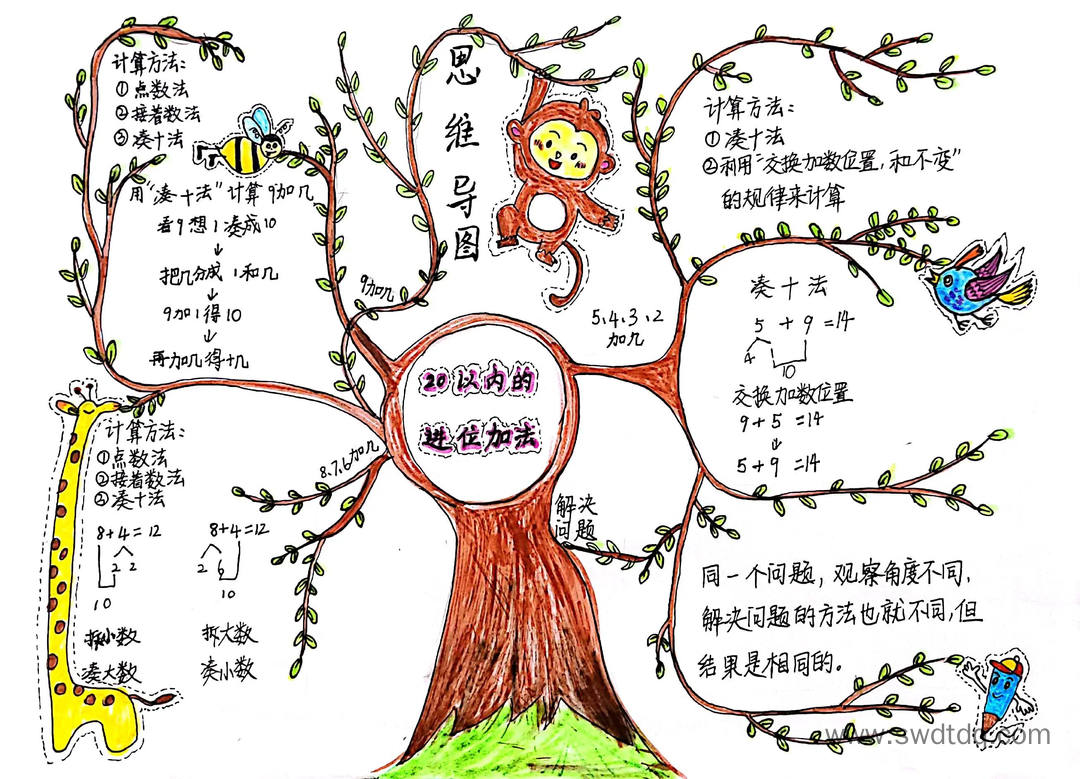 思维导图
20以内的
进位加法
9加几
计算方法：
①点数法
②接着数法
③凑十法
用“凑十法”计算9加几
看9想1凑成10
↓
把几分成1和几
↓
9加1得10
↓
再加几得十几
8、7、6加几
计算方法：
①点数法
②接着数法
③凑十法
8+4=12
2 2
10
拆小数
凑大数
8+4=12
2 6
10
拆大数
凑小数
5、4、3、2
加几
计算方法：
①凑十法
②利用“交换加数位置，和不变”
的规律来计算
凑十法
5+9=14
4 1
10
交换加数位置
9+5=14
↓
5+9=14
解决
问题
同一个问题，观察角度不同，
解决问题的方法也就不同，但
结果是相同的。
www.swdtdq.com